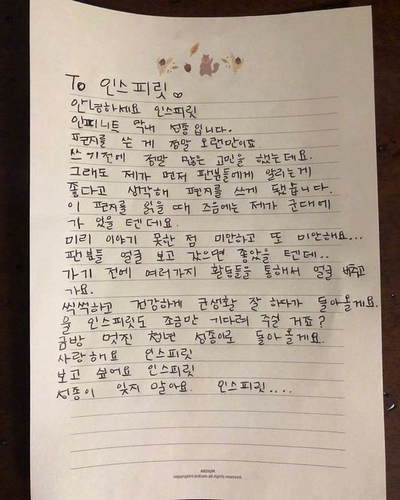 To 인스피릿♡
안녕하세요 인스피릿
인피니트 막내 성종입니다.
편지를 쓴 게 정말 오랜만이죠
쓰기전에 정말 많은 고민을 했는데요.
그래도 제가 먼저 팬분들에게 알리는게
좋다고 생각해 편지를 쓰게 됐습니다.
이 편지를 읽을 때 즈음에는 제가 군대에
가 있을 텐데요.
미리 이야기 못한 점 미안하고 또 미안해요...
팬분들 얼굴 보고 갔으면 좋았을 텐데..
가기 전에 여러가지 활동들을 통해서 얼굴 비추고
가요.
씩씩하고 건강하게 군생활 잘 하다가 돌아올게요.
울 인스피릿도 조금만 기다려 주실 거죠?
금방 멋진 청년 성종이로 돌아 올게요.
사랑해요 인스피릿
보고 싶어요 인스피릿
성종이 잊지 말아요. 인스피릿....